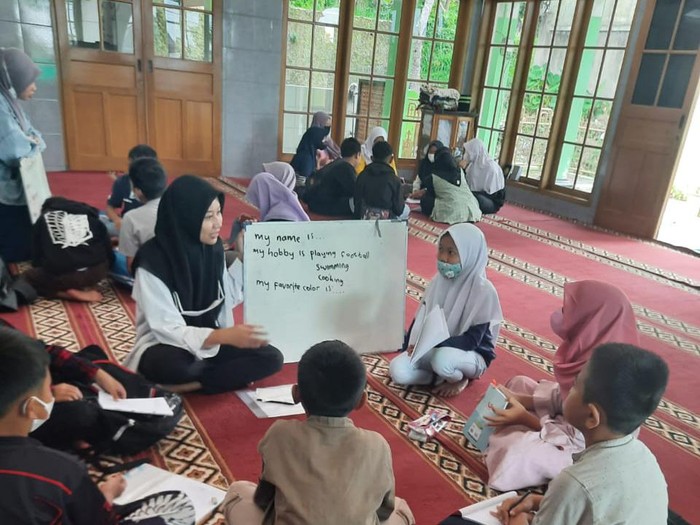 my name is...
my hobby is playing football
swimming
cooking
my favorite color is....